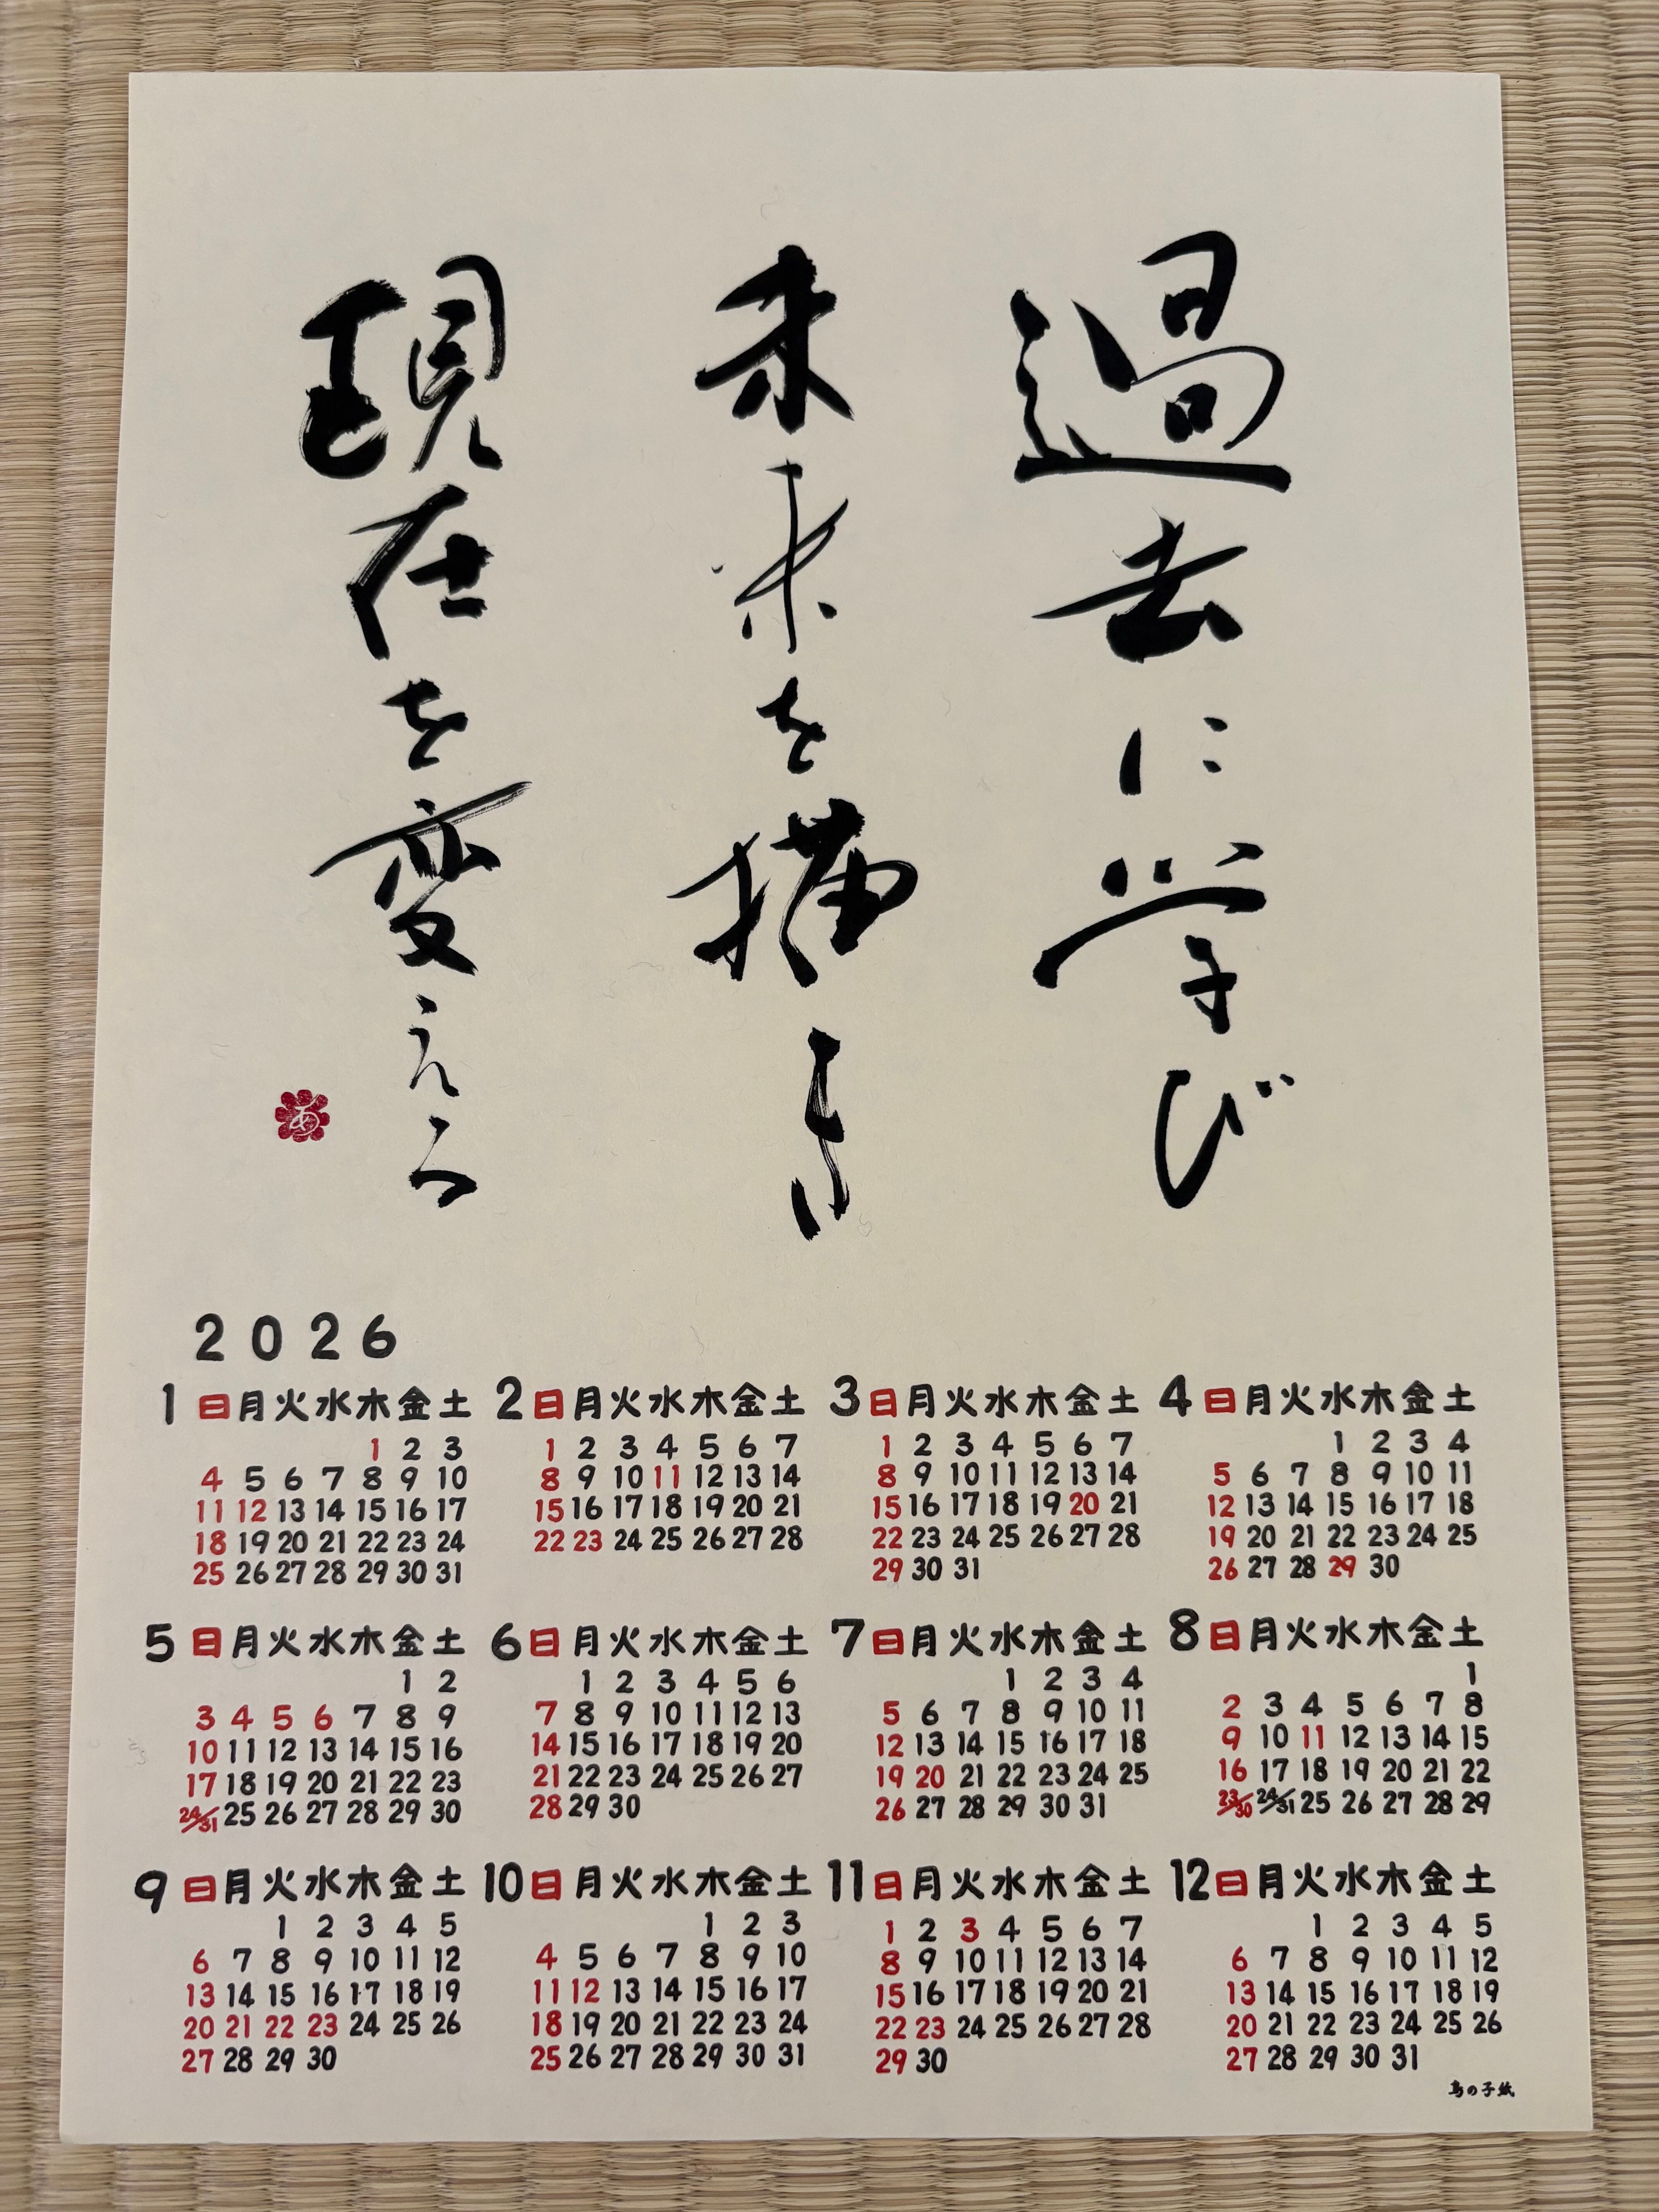 過去に学び
未来を描き
現在を変える
あ
2026
1 日月火水木金土
1 2 3
4 5 6 7 8 9 10
11 12 13 14 15 16 17
18 19 20 21 22 23 24
25 26 27 28 29 30 31
2 日月火水木金土
1 2 3 4 5 6 7
8 9 10 11 12 13 14
15 16 17 18 19 20 21
22 23 24 25 26 27 28
3 日月火水木金土
1 2 3 4 5 6 7
8 9 10 11 12 13 14
15 16 17 18 19 20 21
22 23 24 25 26 27 28
29 30 31
4 日月火水木金土
1 2 3 4
5 6 7 8 9 10 11
12 13 14 15 16 17 18
19 20 21 22 23 24 25
26 27 28 29 30
5 日月火水木金土
1 2
3 4 5 6 7 8 9
10 11 12 13 14 15 16
17 18 19 20 21 22 23
24/31 25 26 27 28 29 30
6 日月火水木金土
1 2 3 4 5 6
7 8 9 10 11 12 13
14 15 16 17 18 19 20
21 22 23 24 25 26 27
28 29 30
7 日月火水木金土
1 2 3 4
5 6 7 8 9 10 11
12 13 14 15 16 17 18
19 20 21 22 23 24 25
26 27 28 29 30 31
8 日月火水木金土
1
2 3 4 5 6 7 8
9 10 11 12 13 14 15
16 17 18 19 20 21 22
23/30 24/31 25 26 27 28 29
9 日月火水木金土
1 2 3 4 5
6 7 8 9 10 11 12
13 14 15 16 17 18 19
20 21 22 23 24 25 26
27 28 29 30
10 日月火水木金土
1 2 3
4 5 6 7 8 9 10
11 12 13 14 15 16 17
18 19 20 21 22 23 24
25 26 27 28 29 30 31
11 日月火水木金土
1 2 3 4 5 6 7
8 9 10 11 12 13 14
15 16 17 18 19 20 21
22 23 24 25 26 27 28
29 30
12 日月火水木金土
1 2 3 4 5
6 7 8 9 10 11 12
13 14 15 16 17 18 19
20 21 22 23 24 25 26
27 28 29 30 31
鳥の子紙